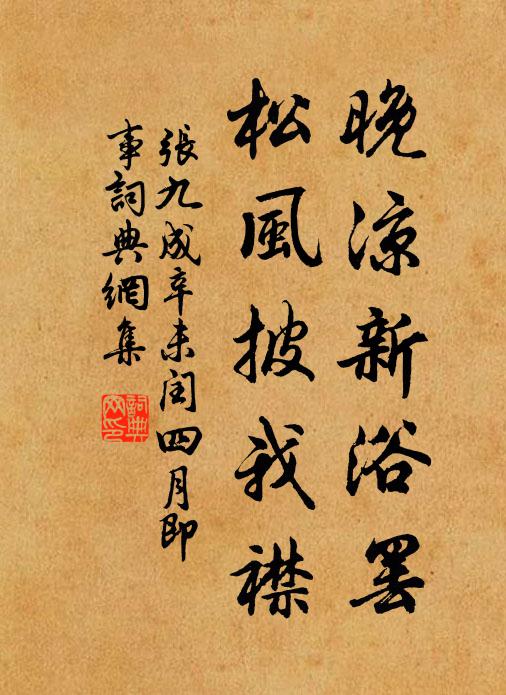 晚涼新浴罷
松風披我襟
張九成辛未閏四月即
事詞典網集
詞典
网印